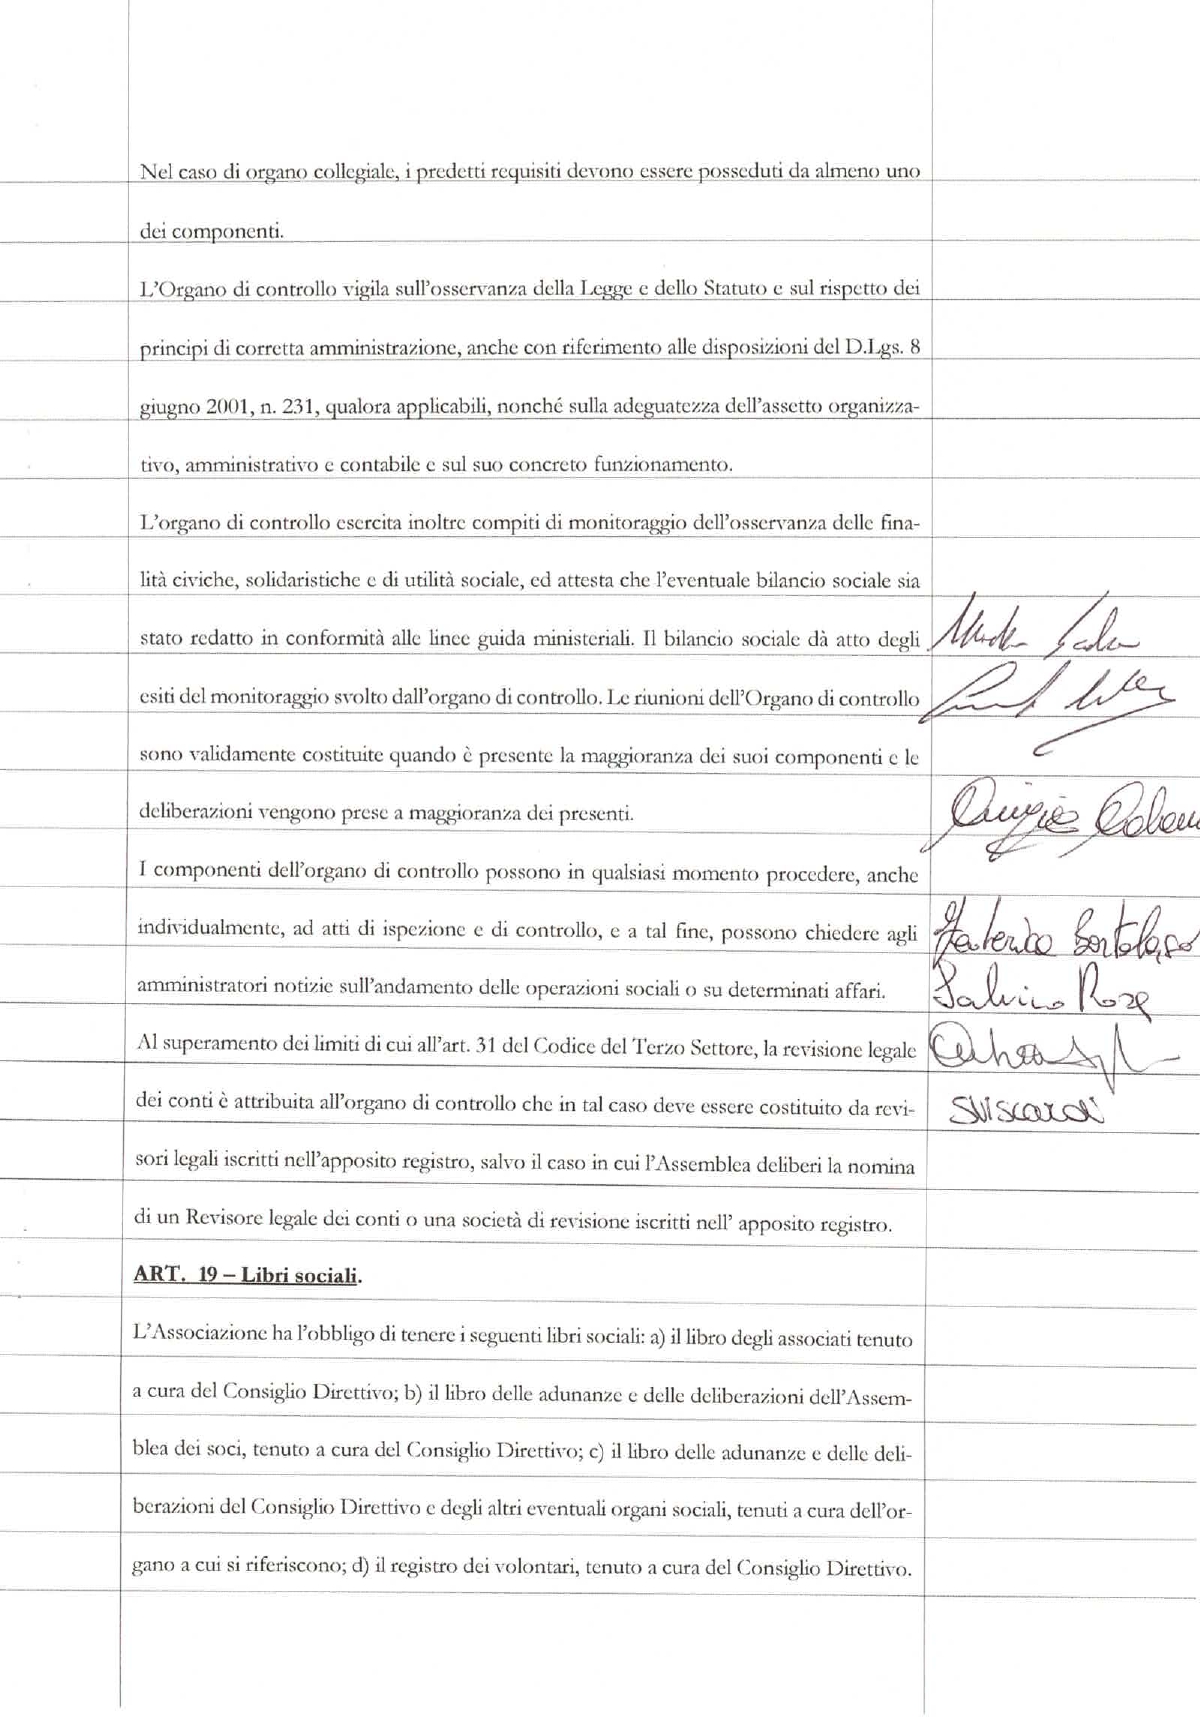 Nel caso di organo collegiale, i predetti requisiti devono essere posseduti da almeno uno
dei componenti.
L'Organo di controllo vigila sull'osservanza della Legge e dello Statuto e sul rispetto dei
principi di corretta amministrazione, anche con riferimento alle disposizioni del D.Lgs. 8
giugno 2001, n. 231, qualora applicabili, nonché sulla adeguatezza dell'assetto organizza-
tivo, amministrativo e contabile e sul suo concreto funzionamento.
L'organo di controllo esercita inoltre compiti di monitoraggio dell'osservanza delle fina-
lità civiche, solidaristiche e di utilità sociale, ed attesta che l'eventuale bilancio sociale sia
stato redatto in conformità alle linee guida ministeriali. Il bilancio sociale dà atto degli
esiti del monitoraggio svolto dall'organo di controllo. Le riunioni dell'Organo di controllo
sono validamente costituite quando è presente la maggioranza dei suoi componenti e le
deliberazioni vengono prese a maggioranza dei presenti.
I componenti dell'organo di controllo possono in qualsiasi momento procedere, anche
individualmente, ad atti di ispezione e di controllo, e a tal fine, possono chiedere agli
amministratori notizie sull'andamento delle operazioni sociali o su determinati affari.
Al superamento dei limiti di cui all'art. 31 del Codice del Terzo Settore, la revisione legale
dei conti è attribuita all'organo di controllo che in tal caso deve essere costituito da revi-
sori legali iscritti nell'apposito registro, salvo il caso in cui l'Assemblea deliberi la nomina
di un Revisore legale dei conti o una società di revisione iscritti nell' apposito registro.
ART. 19 – Libri sociali.
L'Associazione ha l'obbligo di tenere i seguenti libri sociali: a) il libro degli associati tenuto
a cura del Consiglio Direttivo; b) il libro delle adunanze e delle deliberazioni dell'Assem-
blea dei soci, tenuto a cura del Consiglio Direttivo; c) il libro delle adunanze e delle deli-
berazioni del Consiglio Direttivo e degli altri eventuali organi sociali, tenuti a cura dell'or-
gano a cui si riferiscono; d) il registro dei volontari, tenuto a cura del Consiglio Direttivo.